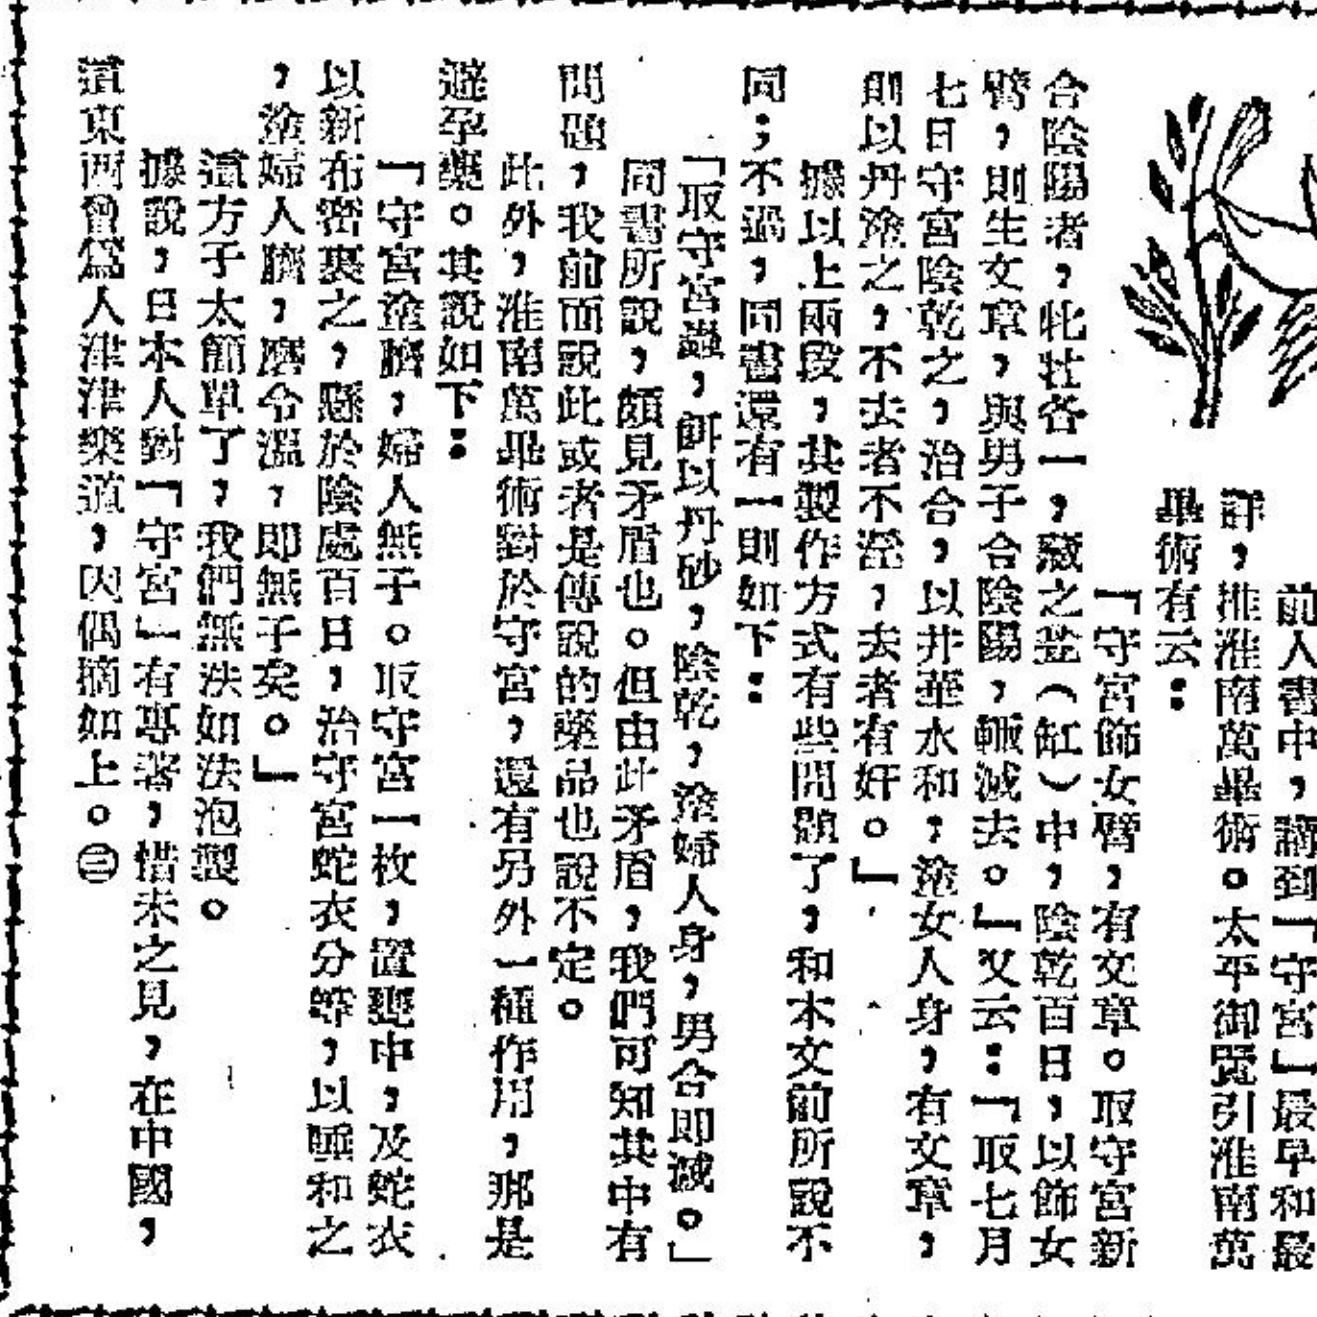 前人書中，講到「守宮」最早和最
詳，推淮南萬畢術。太平御覽引淮南萬
畢術有云：
「守宮飾女臂，有文章。取守宮新
合陰陽者，牝牡各一，藏之瓮（缸）中，陰乾百日，以飾女
臂，則生文章，與男子合陰陽，輒滅去。」又云：「取七月
七日守宮陰乾之，治合，以井華水和，塗女人身，有文章，
則以丹塗之，不去者不淫，去者有奸。」
據以上兩段，其製作方式有些問題了，和本文前所說不
同；不過，同書還有一則如下：
「取守宮蟲，餌以丹砂，陰乾，塗婦人身，男合即滅。」
同書所說，頗見矛盾也。但由此矛盾，我們可知其中有
問題，我前面說此或者是傳說的藥品也說不定。
此外，淮南萬畢術對於守宮，還有另外一種作用，那是
避孕藥。其說如下：
「守宮塗臍，婦人無子。取守宮一枚，置甕中，及蛇衣
以新布密裹之，懸於陰處百日，治守宮蛇衣分等，以唾和之
，塗婦人臍，磨令溫，即無子矣。」
這方子太簡單了，我們無法如法泡製。
據說，日本人對「守宮」有專著，惜未之見，在中國，
這東西曾為人津津樂道，因偶摘如上。㊂